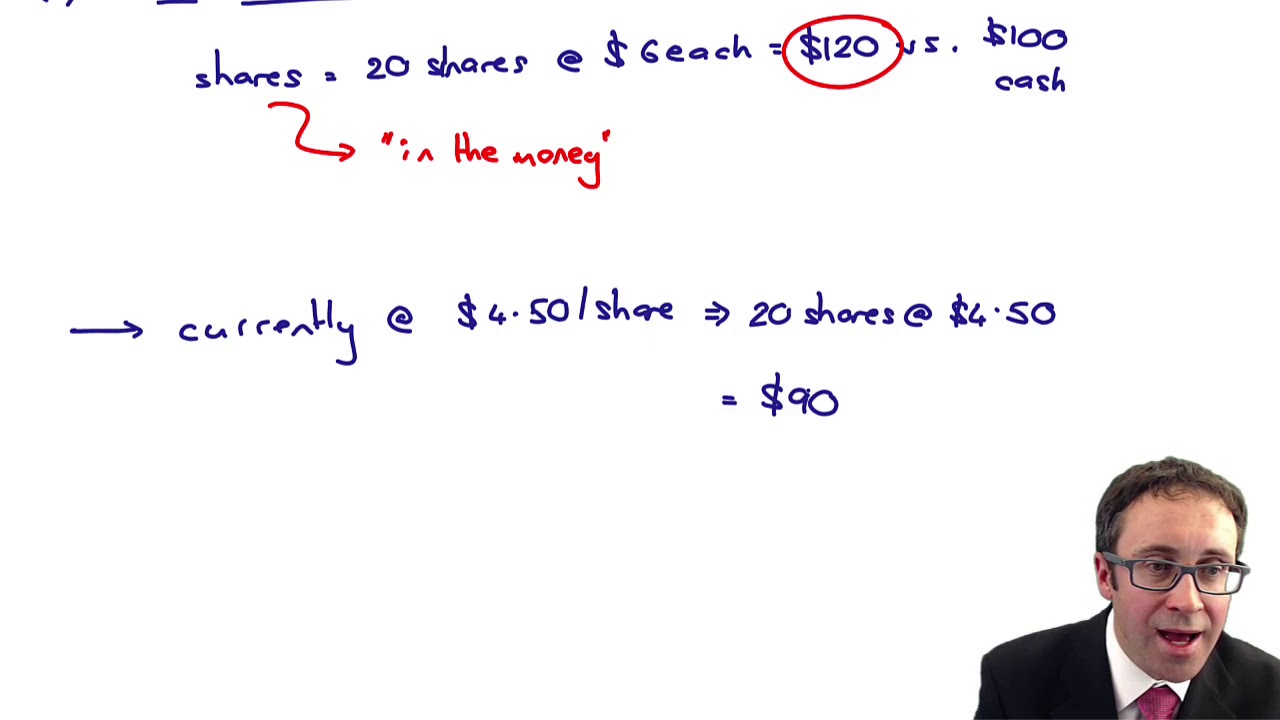 shares = 20 shares @ $6 each = $120 vs. $100 cash
"in the money"
currently @ $4.50/share ⇒ 20 shares @ $4.50
= $90